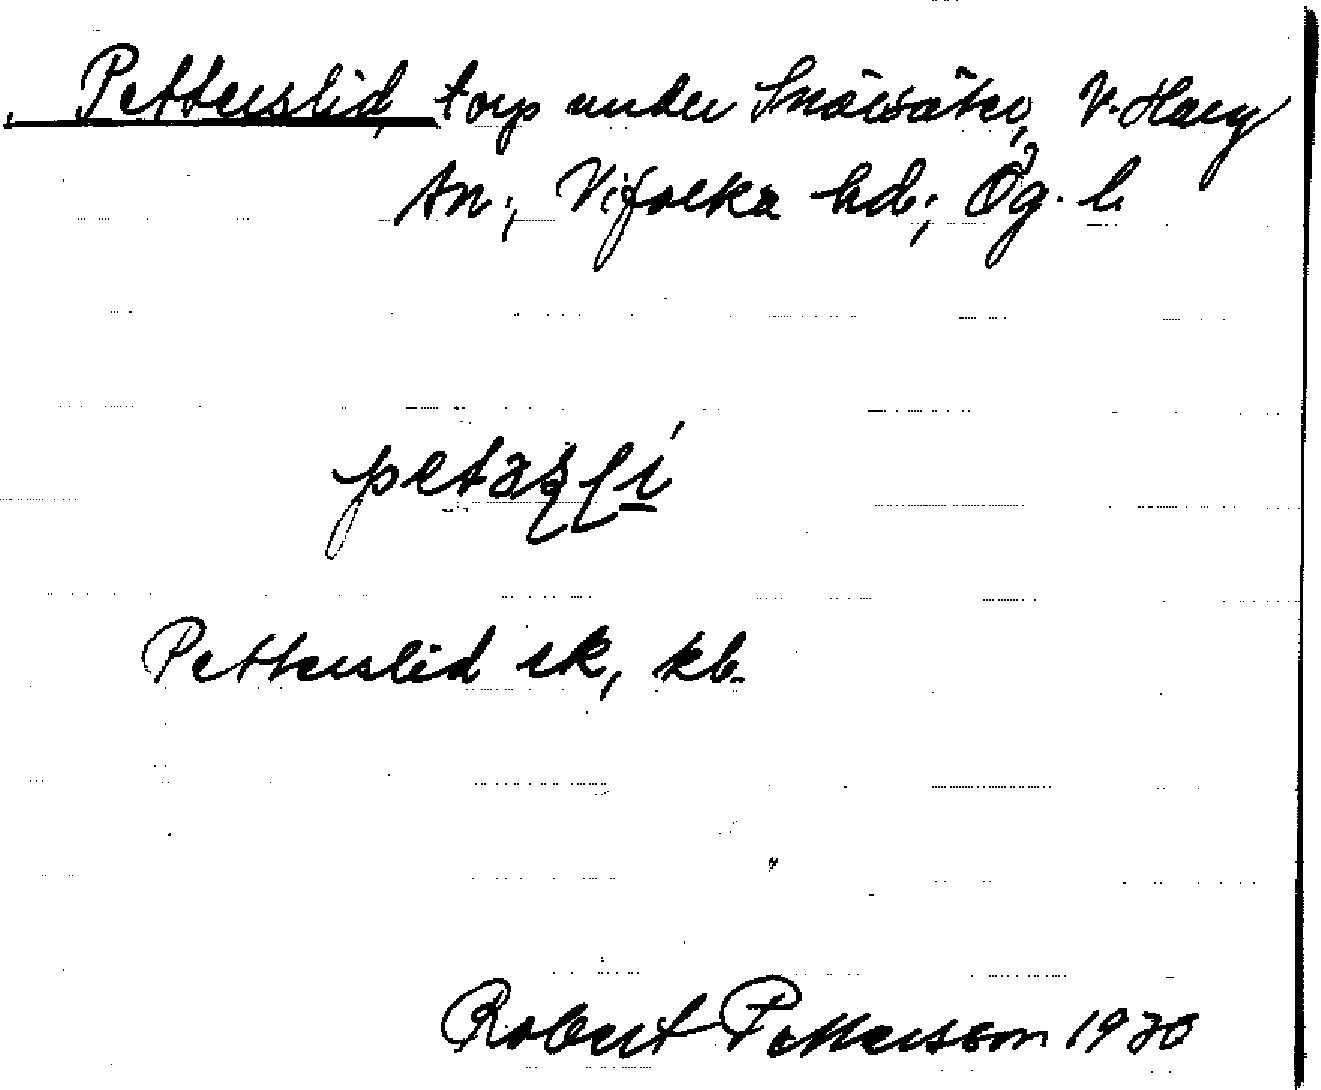 Petterslid, torp under Snäcsäter, V. Harg
sn.; Vifolka hd; Ög. l.
petəsļi
Petterslid ek, kb.
Robert Pettersson 1930